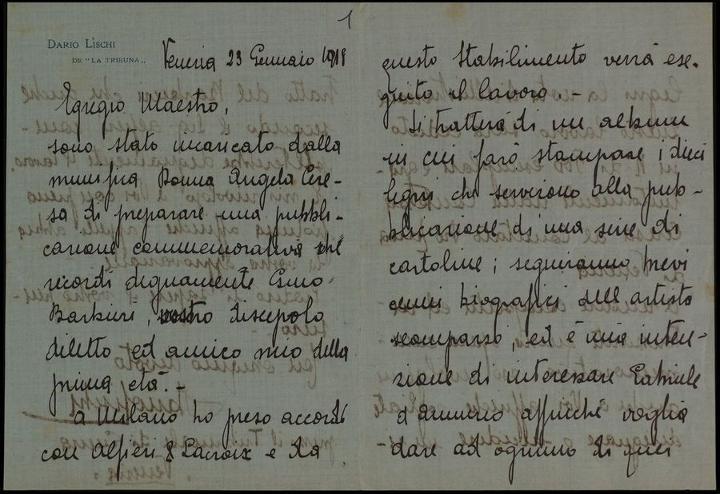 1
DARIO LISCHI
DE "LA TRIBUNA"
Venezia 23 Gennaio 1919
Egregio Maestro,
sono stato incaricato dalla
munifica Donna Angela
sa di preparare una pubbli-
cazione commemorativa che
ricordi degnamente
Barberi, vostro discepolo
diletto ed amico mio della
prima età.-
A Milano ho preso accordi
con Alfieri & Lacroix e da
questo stabilimento verrà ese-
guito il lavoro.-
Si tratterà di un album
in cui farò stampare i dieci
legni che servirono alla pub-
blicazione di una serie di
cartoline; seguiranno brevi
cenni biografici dell'artista
scomparso, ed è mia inten-
zione di interessare Gabriele
d'Annunzio affinchè voglia
dare ad ognuno di quei